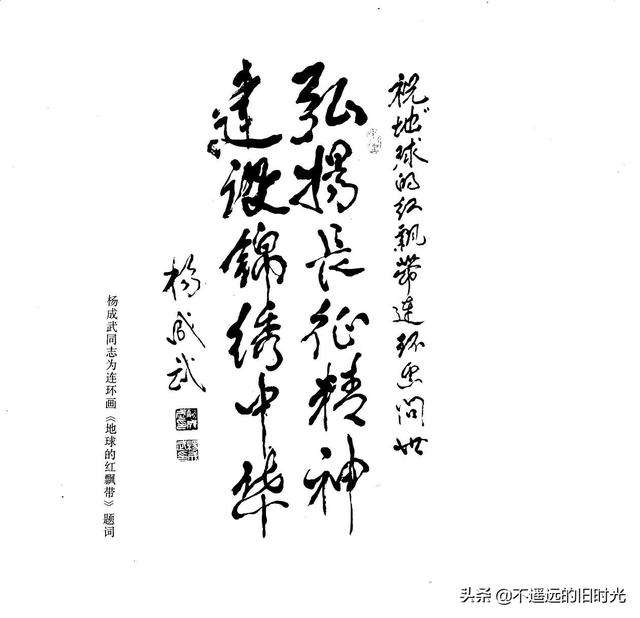 祝地球的红飘带连环画问世
弘扬長征精神
建设锦绣中华
杨成武
杨成武同志为连环画《地球的红飘带》题词
头条 @不遥远的旧时光